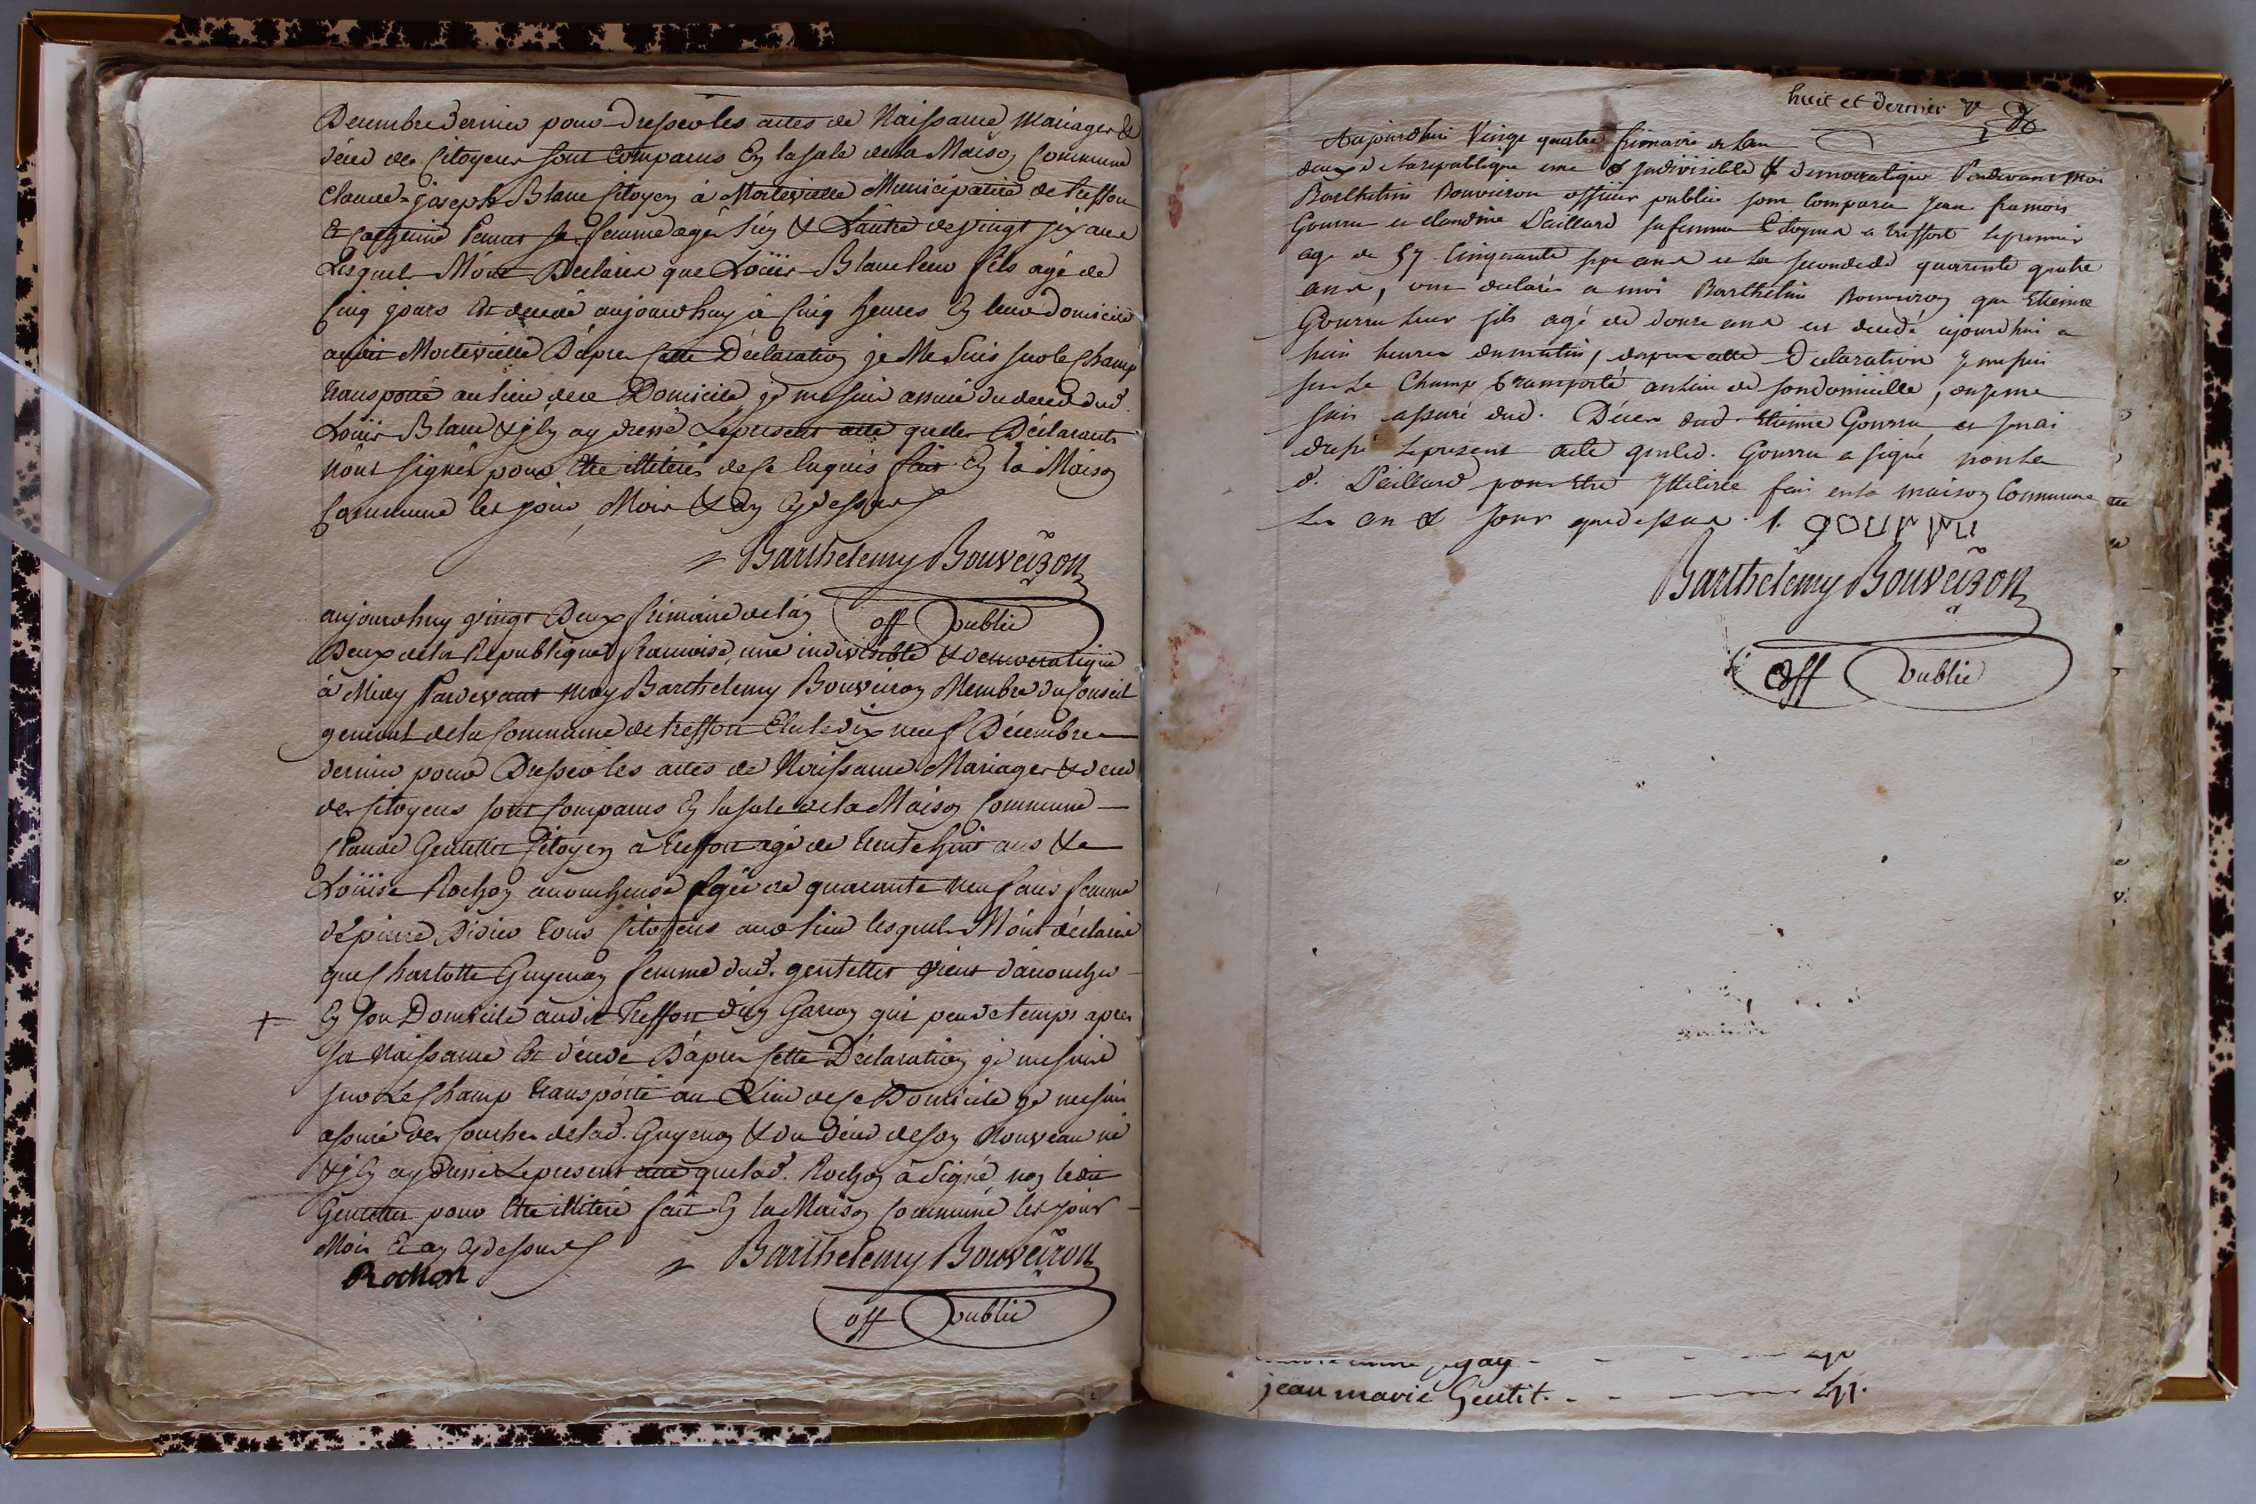 Decembre dernier pour dresser les actes de Naissance Mariages &
déces des Citoyens sont comparus En la sale de la Maison Commune
Claude-joseph Blanc Citoyen à Montevielle Municipalité de treffon
& Catherine sa femme agés & Lautre de vingt six ans
Lesquels M'ont Declarés que Loüis Blanc leur fils agé de
Cinq jours Est decedé aujourdhuy à Cinq heures En leur domicile
audit D'apres Cette Déclaration je Me Suis sur le Champ
transporté au lieu de ce Domicile je me suis assuré du deces dud.
Loüis Blanc & j'En ay dressé Le present acte que les Déclarants
n'ont signés pour Etre illiterés de ce Enquis fait En la Maison
Commune les jour Mois & an Cy dessus
Barthelemy Bouveiron
off public
aujourdhuy vingt Deux frimaire de l'an
Deux de la Republique francoise, une indivisible & democratique
à Midy Pardevant moy Barthelemy Bouveiron Membre du Conseil
general de la Commune de treffort Elu le dix neuf Décembre
dernier pour Dresser les actes de Naissance Mariages & deces
des Citoyens sont Comparus En la sale de la Maison Commune
Claude Gentellet Citoyen à treffort agé de trente huit ans &
Loüise Rochon accoucheuse agée de quarante neuf ans femme
de pierre Didier tous Citoyens aud lieu lesquels M'ont déclarés
que Charlotte Guyenon femme dud. gentellet vient d'accoucher
En son Domicile audit treffort d'un Garcon qui peu de temps apres
sa Naissance Est décedé D'apres cette Déclaration je me suis
sur Le Champ transporté au Lieu de ce Domicile je me suis
assuré des couches de lad. Guyenon & du déces de son Nouveau né
& j'En ay dressé Le present acte que lad. Rochon à signé, non ledit
Gentellet pour Etre illiteré fait En la Maison Commune les jour
Mois & an Cy dessus
Barthelemy Bouveiron
Rochon
off public
huit et dernier
Aujourdhui Vingt quatre frimaire de lan
deux de la republique une & Indivisible & democratique Pardevant moi
Barthelmi Bouveiron officier public sont comparu Jean francois
Gourru et claudine Paillard sa femme Citoyens a treffort le premier
age de 57 Cinquante sept ans et la seconde de quarente quatre
ans, ont declarés a moi Barthelmi Bouveiron que Etienne
Gourru leur fils agé de douze ans est decedé ajourdhui a
huit heures du matin, dapres cette Declaration je me suis
sur le Champ transporté au lieu de son domicille, ou je me
suis assuré dud. Déces dud Etienne Gourru et jen ai
dressé le present acte que led. Gourru a signé non la
d. Paillard pour etre Illiterée fait en la maison Commune
les an & jour que dessus. f. gourru
Barthelemy Bouveiron
off public
gay
jean marie Gentit